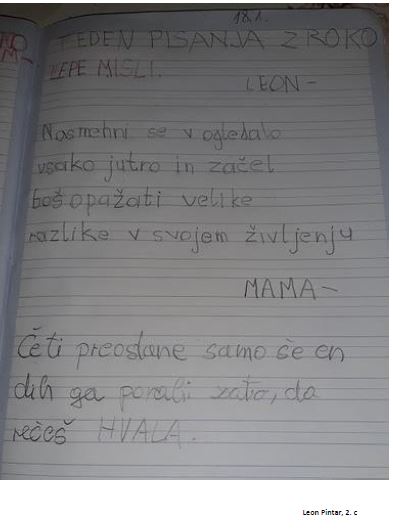 18.1.
TEDEN PISANJA Z ROKO
LEPE MISLI.
LEON-
Nasmehni se v ogledalo
vsako jutro in začel
boš opažati velike
razlike v svojem življenju
MAMA-
Če ti preostane samo še en
dih ga porabi zato, da
rečeš HVALA.
Leon Pintar, 2. c